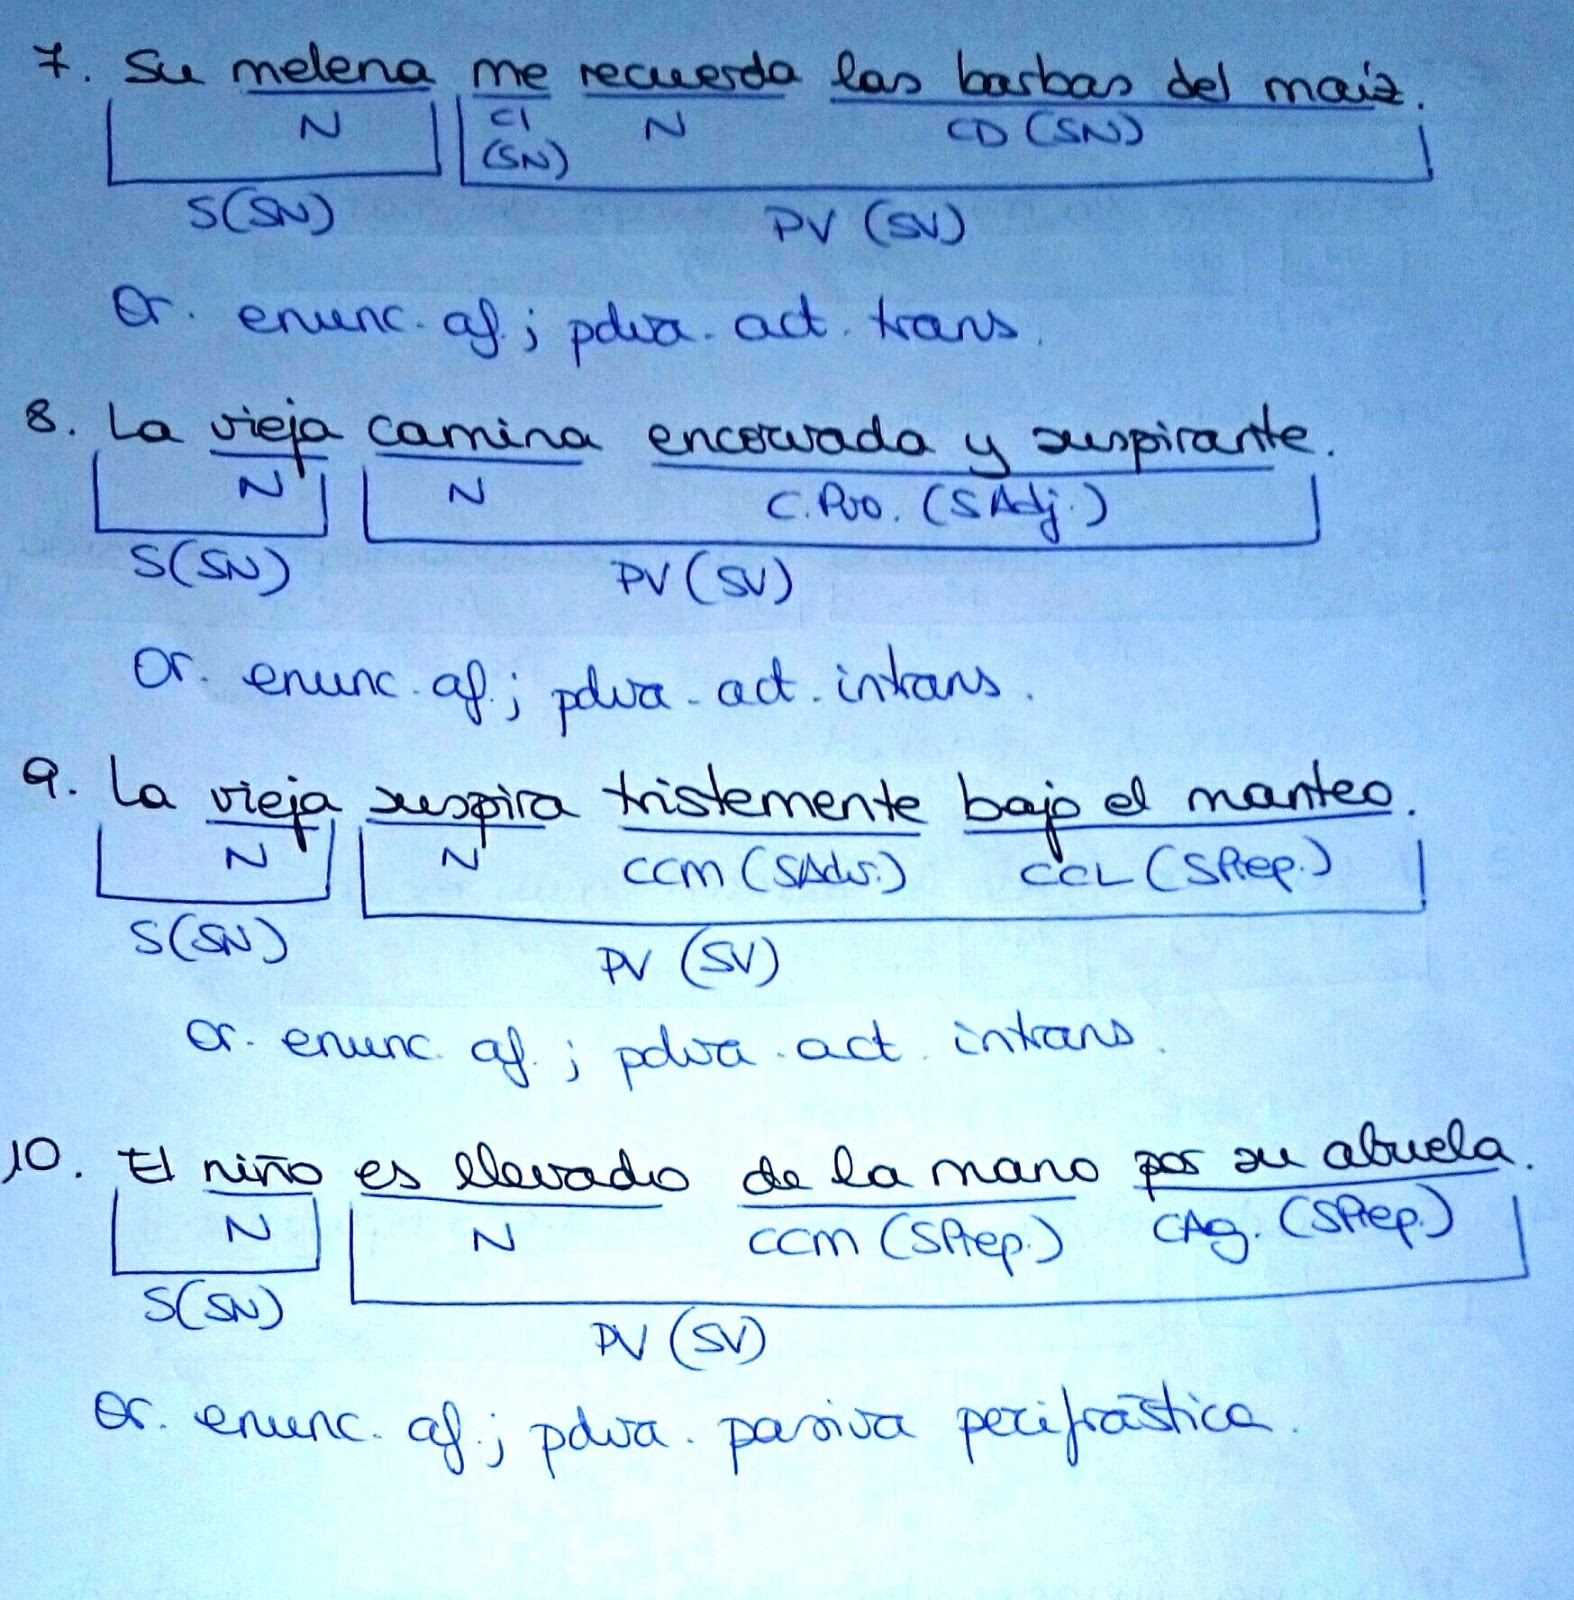 7. Su melena me recuerda las barbas del maíz.
N CI N CD (SN)
(SN)
S(SN) PV (SV)
Or. enunc. af.; pdva. act. trans.
8. La vieja camina encorvada y suspirante.
N N C.Pvo. (SAdj.)
S(SN) PV (SV)
Or. enunc. af.; pdva. act. intrans.
9. La vieja suspira tristemente bajo el manteo.
N N CCM (SAdv.) CCL (SPrep.)
S(SN) PV (SV)
Or. enunc. af.; pdva. act. intrans.
10. El niño es llevado de la mano por su abuela.
N N CCM (SPrep.) CAg. (SPrep.)
S(SN) PV (SV)
Or. enunc. af.; pdva. pasiva perifrástica.